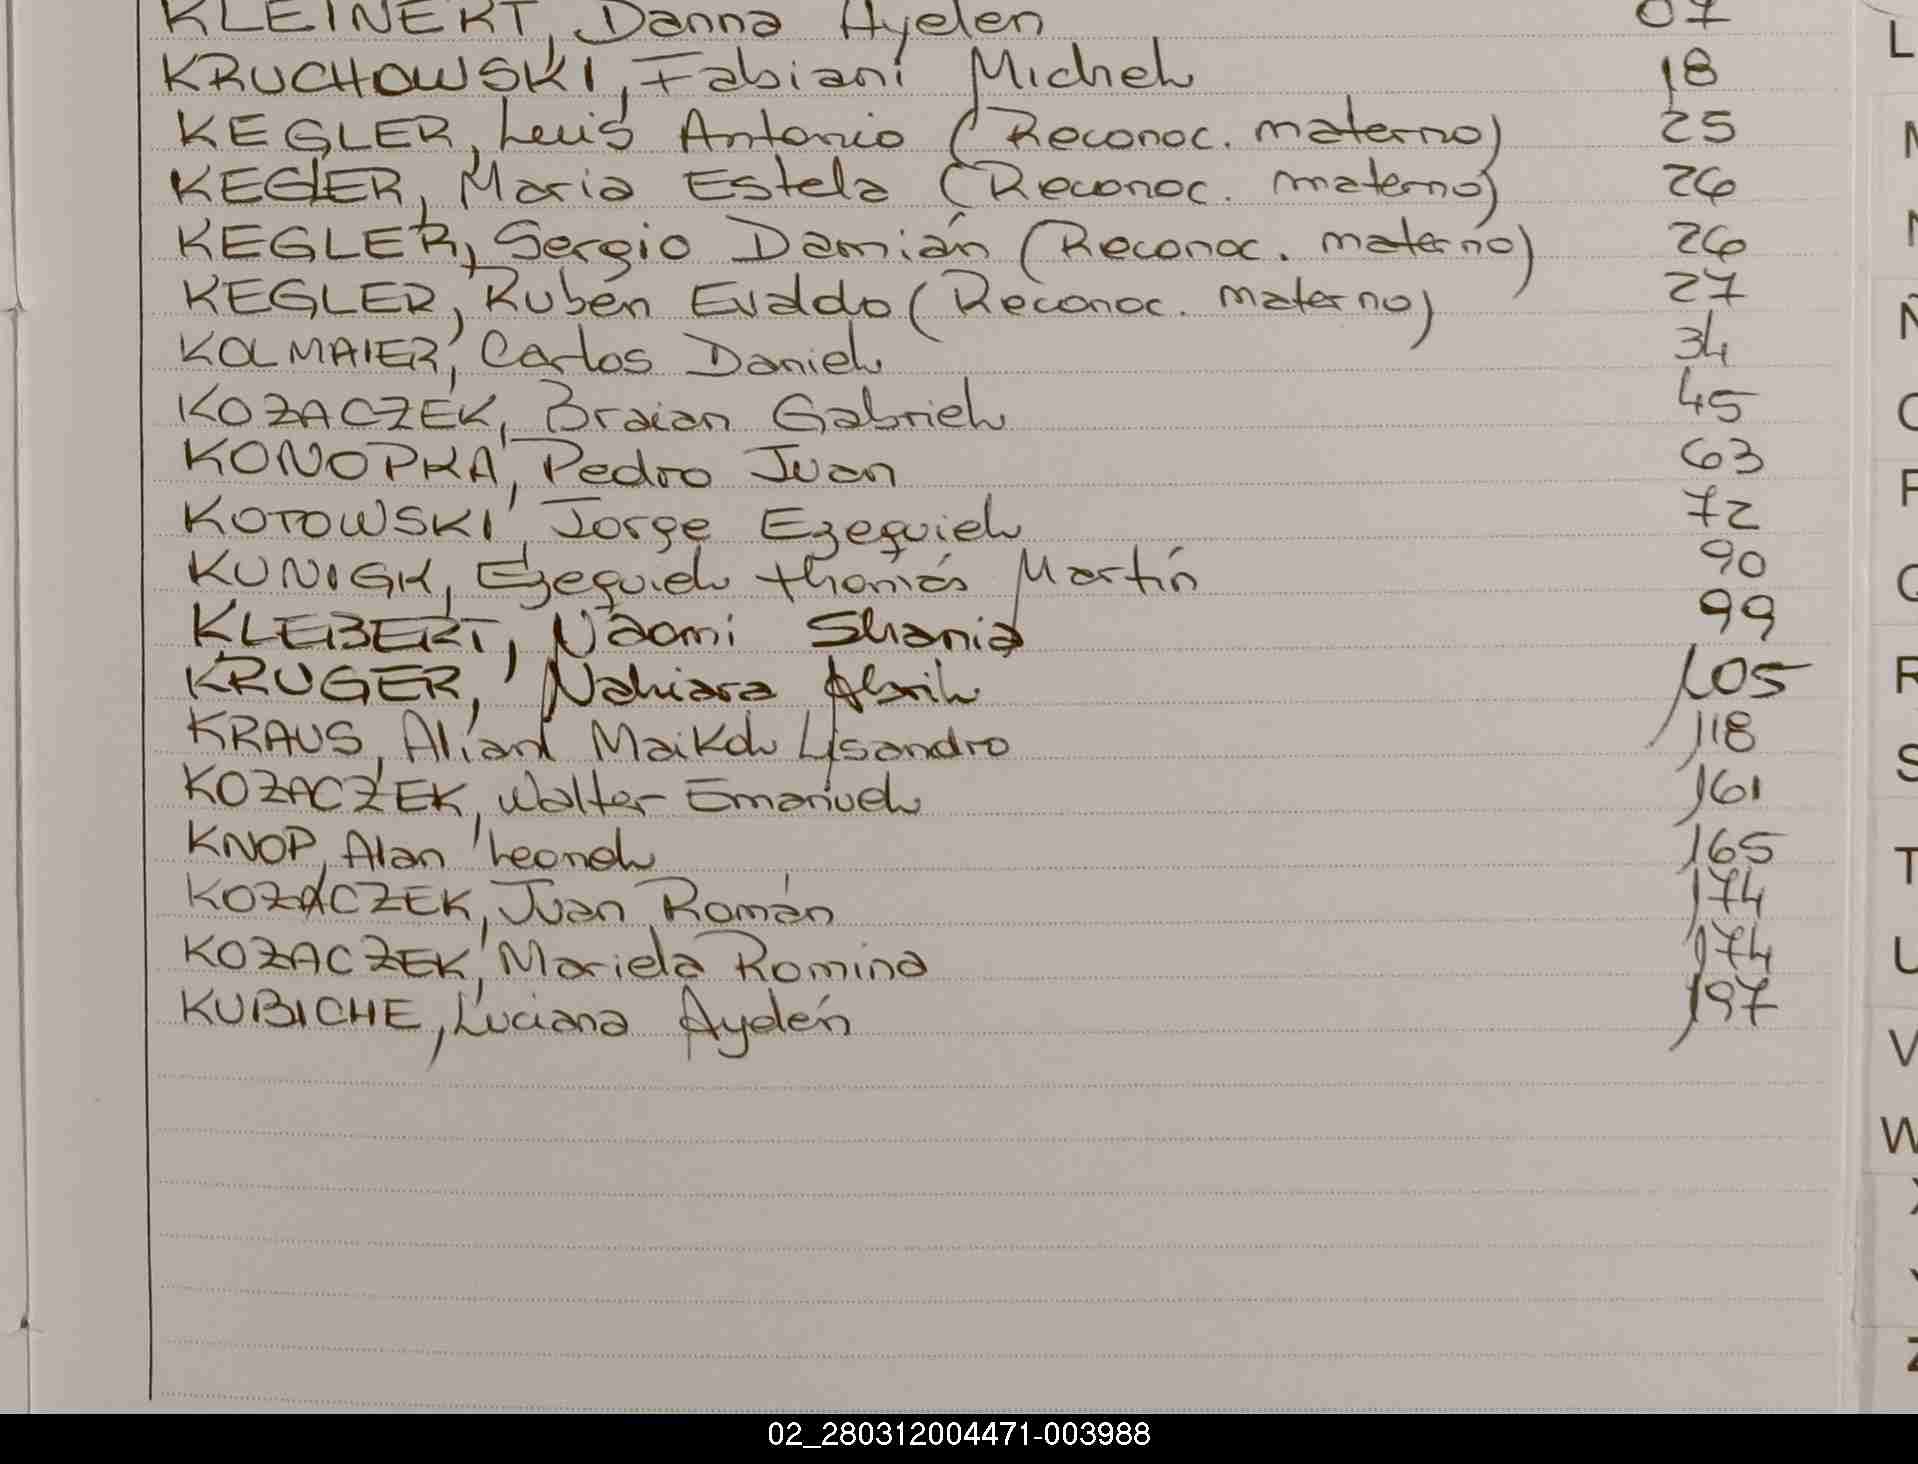 KLEINERT, Danna Ayelen 07
KRUCHOWSKI, Fabiani Michel 18
KEGLER, Luis Antonio (Reconoc. materno) 25
KEGLER, Maria Estela (Reconoc. materno) 26
KEGLER, Sergio Damián (Reconoc. materno) 26
KEGLER, Rubén Evaldo (Reconoc. materno) 27
KOLMAIER, Carlos Daniel 34
KOZACZEK, Braian Gabriel 45
KONOPKA, Pedro Juan 63
KOTOWSKI, Jorge Ezequiel 72
KUNIGK, Ezequiel Thomás Martín 90
KLEIBERT, Naomi Shania 99
KRUGER, Nahiara Abril 105
KRAUS, Alian Maikol Lisandro 118
KOZACZEK, Walter Emanuel 161
KNOP, Alan Leonel 165
KOZACZEK, Juan Román 174
KOZACZEK, Mariela Romina 174
KUBICHE, Luciana Aydén 197
L
M
N
Ñ
O
P
Q
R
S
T
U
V
W
X
Y
Z
02_280312004471-003988